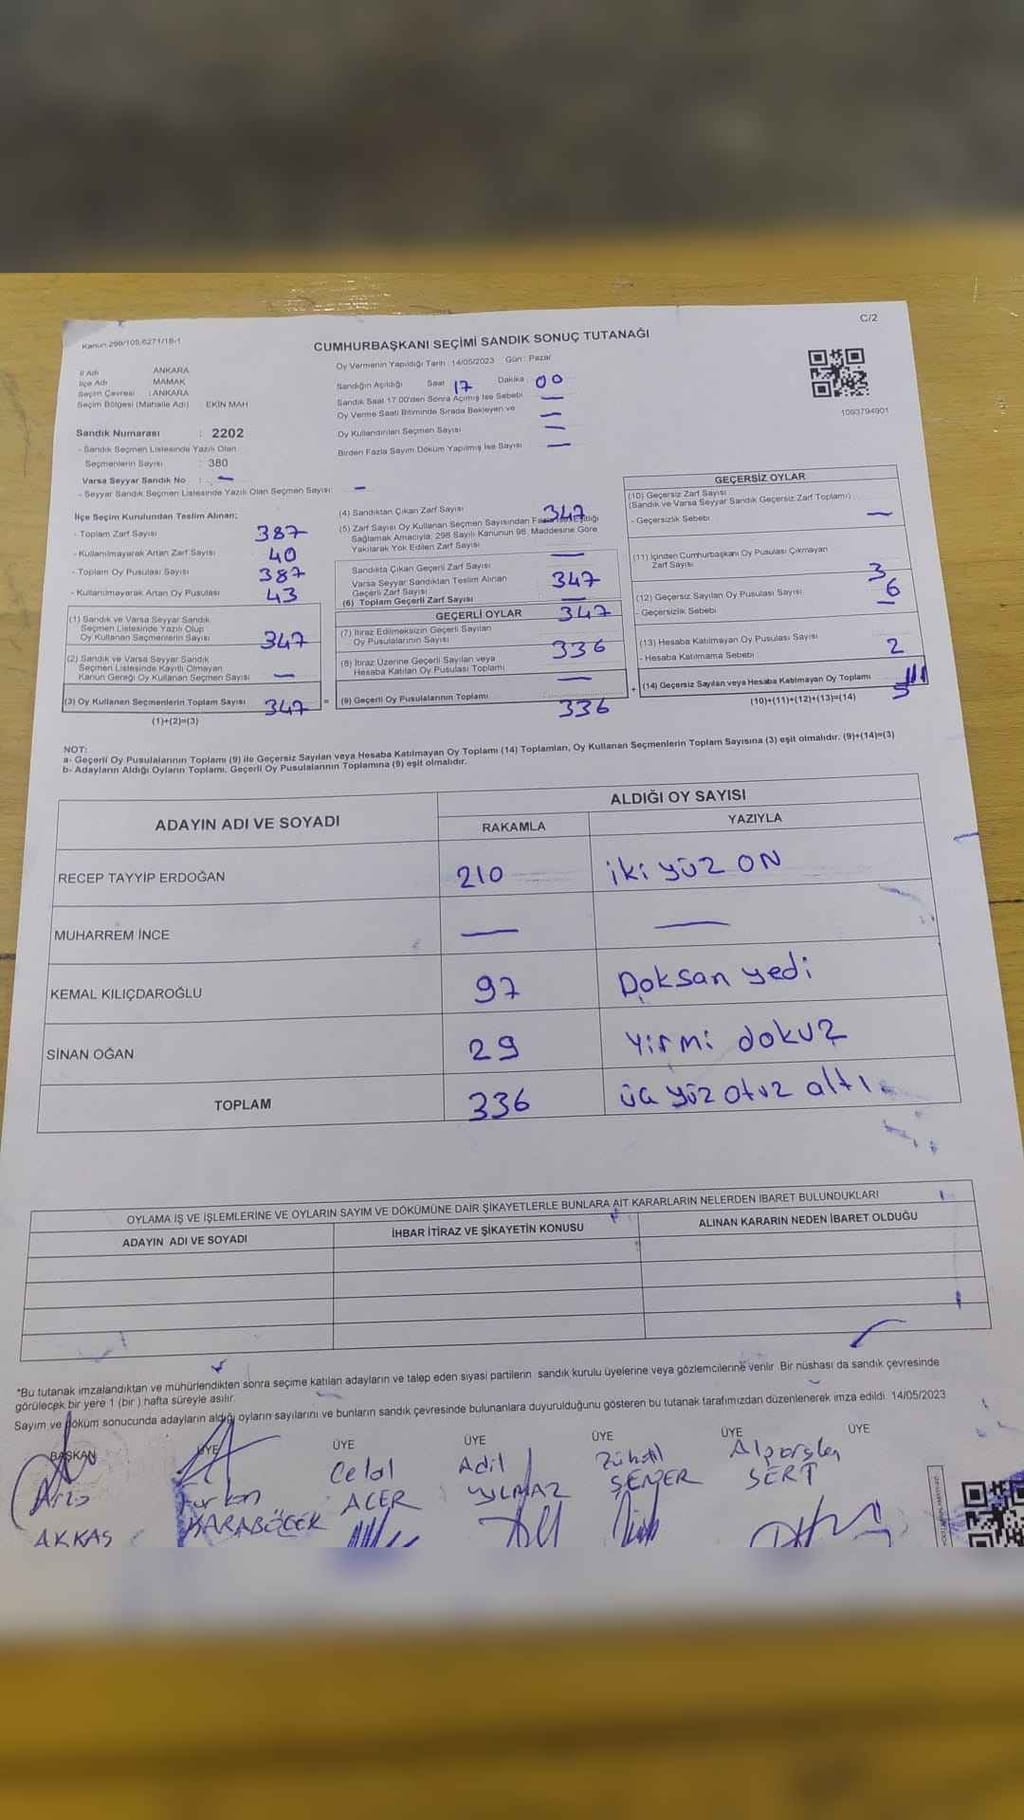 Kanun:298/105,6271/18-1
C/2
CUMHURBAŞKANI SEÇİMİ SANDIK SONUÇ TUTANAĞI
İl Adı : ANKARA
İlçe Adı : MAMAK
Seçim Çevresi : ANKARA
Seçim Bölgesi (Mahalle Adı) EKİN MAH
Sandık Numarası : 2202
- Sandık Seçmen Listesinde Yazılı Olan
Seçmenlerin Sayısı : 380
Varsa Seyyar Sandık No : —
- Seyyar Sandık Seçmen Listesinde Yazılı Olan Seçmen Sayısı: —
Oy Vermenin Yapıldığı Tarih : 14/05/2023 Gün : Pazar
Sandığın Açıldığı Saat 17 Dakika 00
Sandık Saat 17:00'den Sonra Açılmış İse Sebebi —
Oy Verme Saati Bitiminde Sırada Bekleyen ve —
Oy Kullandırılan Seçmen Sayısı —
Birden Fazla Sayım Döküm Yapılmış İse Sayısı —
1093794901
İlçe Seçim Kurulundan Teslim Alınan;
- Toplam Zarf Sayısı 387
- Kullanılmayarak Artan Zarf Sayısı 40
- Toplam Oy Pusulası Sayısı 387
- Kullanılmayarak Artan Oy Pusulası 43
(1) Sandık ve Varsa Seyyar Sandık
Seçmen Listesinde Yazılı Olup
Oy Kullanan Seçmenlerin Sayısı 347
(2) Sandık ve Varsa Seyyar Sandık
Seçmen Listesinde Kayıtlı Olmayan
Kanun Gereği Oy Kullanan Seçmen Sayısı —
(3) Oy Kullanan Seçmenlerin Toplam Sayısı 347
(1)+(2)=(3)
(4) Sandıktan Çıkan Zarf Sayısı 347
(5) Zarf Sayısı Oy Kullanan Seçmen Sayısından
Sağlamak Amacıyla, 298 Sayılı Kanunun 98. Maddesine Göre
Yakılarak Yok Edilen Zarf Sayısı —
Sandıkta Çıkan Geçerli Zarf Sayısı 347
Varsa Seyyar Sandıktan Teslim Alınan
Geçerli Zarf Sayısı —
(6) Toplam Geçerli Zarf Sayısı 347
GEÇERLİ OYLAR
(7) İtiraz Edilmeksizin Geçerli Sayılan
Oy Pusulalarının Sayısı 336
(8) İtiraz Üzerine Geçerli Sayılan veya
Hesaba Katılan Oy Pusulası Toplamı —
= (9) Geçerli Oy Pusulalarının Toplamı 336
GEÇERSİZ OYLAR
(10) Geçersiz Zarf Sayısı
(Sandık ve Varsa Seyyar Sandık Geçersiz Zarf Toplamı)
- Geçersizlik Sebebi —
(11) İçinden Cumhurbaşkanı Oy Pusulası Çıkmayan
Zarf Sayısı 3
(12) Geçersiz Sayılan Oy Pusulası Sayısı 6
- Geçersizlik Sebebi —
(13) Hesaba Katılmayan Oy Pusulası Sayısı 2
- Hesaba Katılmama Sebebi
+ (14) Geçersiz Sayılan veya Hesaba Katılmayan Oy Toplamı
(10)+(11)+(12)+(13)=(14)
NOT:
a- Geçerli Oy Pusulalarının Toplamı (9) ile Geçersiz Sayılan veya Hesaba Katılmayan Oy Toplamı (14) Toplamları, Oy Kullanan Seçmenlerin Toplam Sayısına (3) eşit olmalıdır. (9)+(14)=(3)
b- Adayların Aldığı Oyların Toplamı, Geçerli Oy Pusulalarının Toplamına (9) eşit olmalıdır.
ADAYIN ADI VE SOYADI
ALDIĞI OY SAYISI
RAKAMLA YAZIYLA
RECEP TAYYIP ERDOĞAN 210 iki yüz ON
MUHARREM İNCE — —
KEMAL KILIÇDAROĞLU 97 Doksan yedi
SİNAN OĞAN 29 Yirmi dokuz
TOPLAM 336 üç yüz otuz altı
OYLAMA İŞ VE İŞLEMLERİNE VE OYLARIN SAYIM VE DÖKÜMÜNE DAİR ŞİKAYETLERLE BUNLARA AİT KARARLARIN NELERDEN İBARET BULUNDUKLARI
ADAYIN ADI VE SOYADI İHBAR İTİRAZ VE ŞİKAYETİN KONUSU ALINAN KARARIN NEDEN İBARET OLDUĞU
*Bu tutanak imzalandıktan ve mühürlendikten sonra seçime katılan adayların ve talep eden siyasi partilerin sandık kurulu üyelerine veya gözlemcilerine verilir. Bir nüshası da sandık çevresinde
görülecek bir yere 1 (bir ) hafta süreyle asılır.
Sayım ve döküm sonucunda adayların aldığı oyların sayılarını ve bunların sandık çevresinde bulunanlara duyurulduğunu gösteren bu tutanak tarafımızdan düzenlenerek imza edildi. 14/05/2023
BAŞKAN ÜYE ÜYE ÜYE ÜYE ÜYE ÜYE
Furkan Celal Adil Zühtü Alparslan
AKKAŞ KARABÖCEK ACER YILMAZ ŞENER SERT